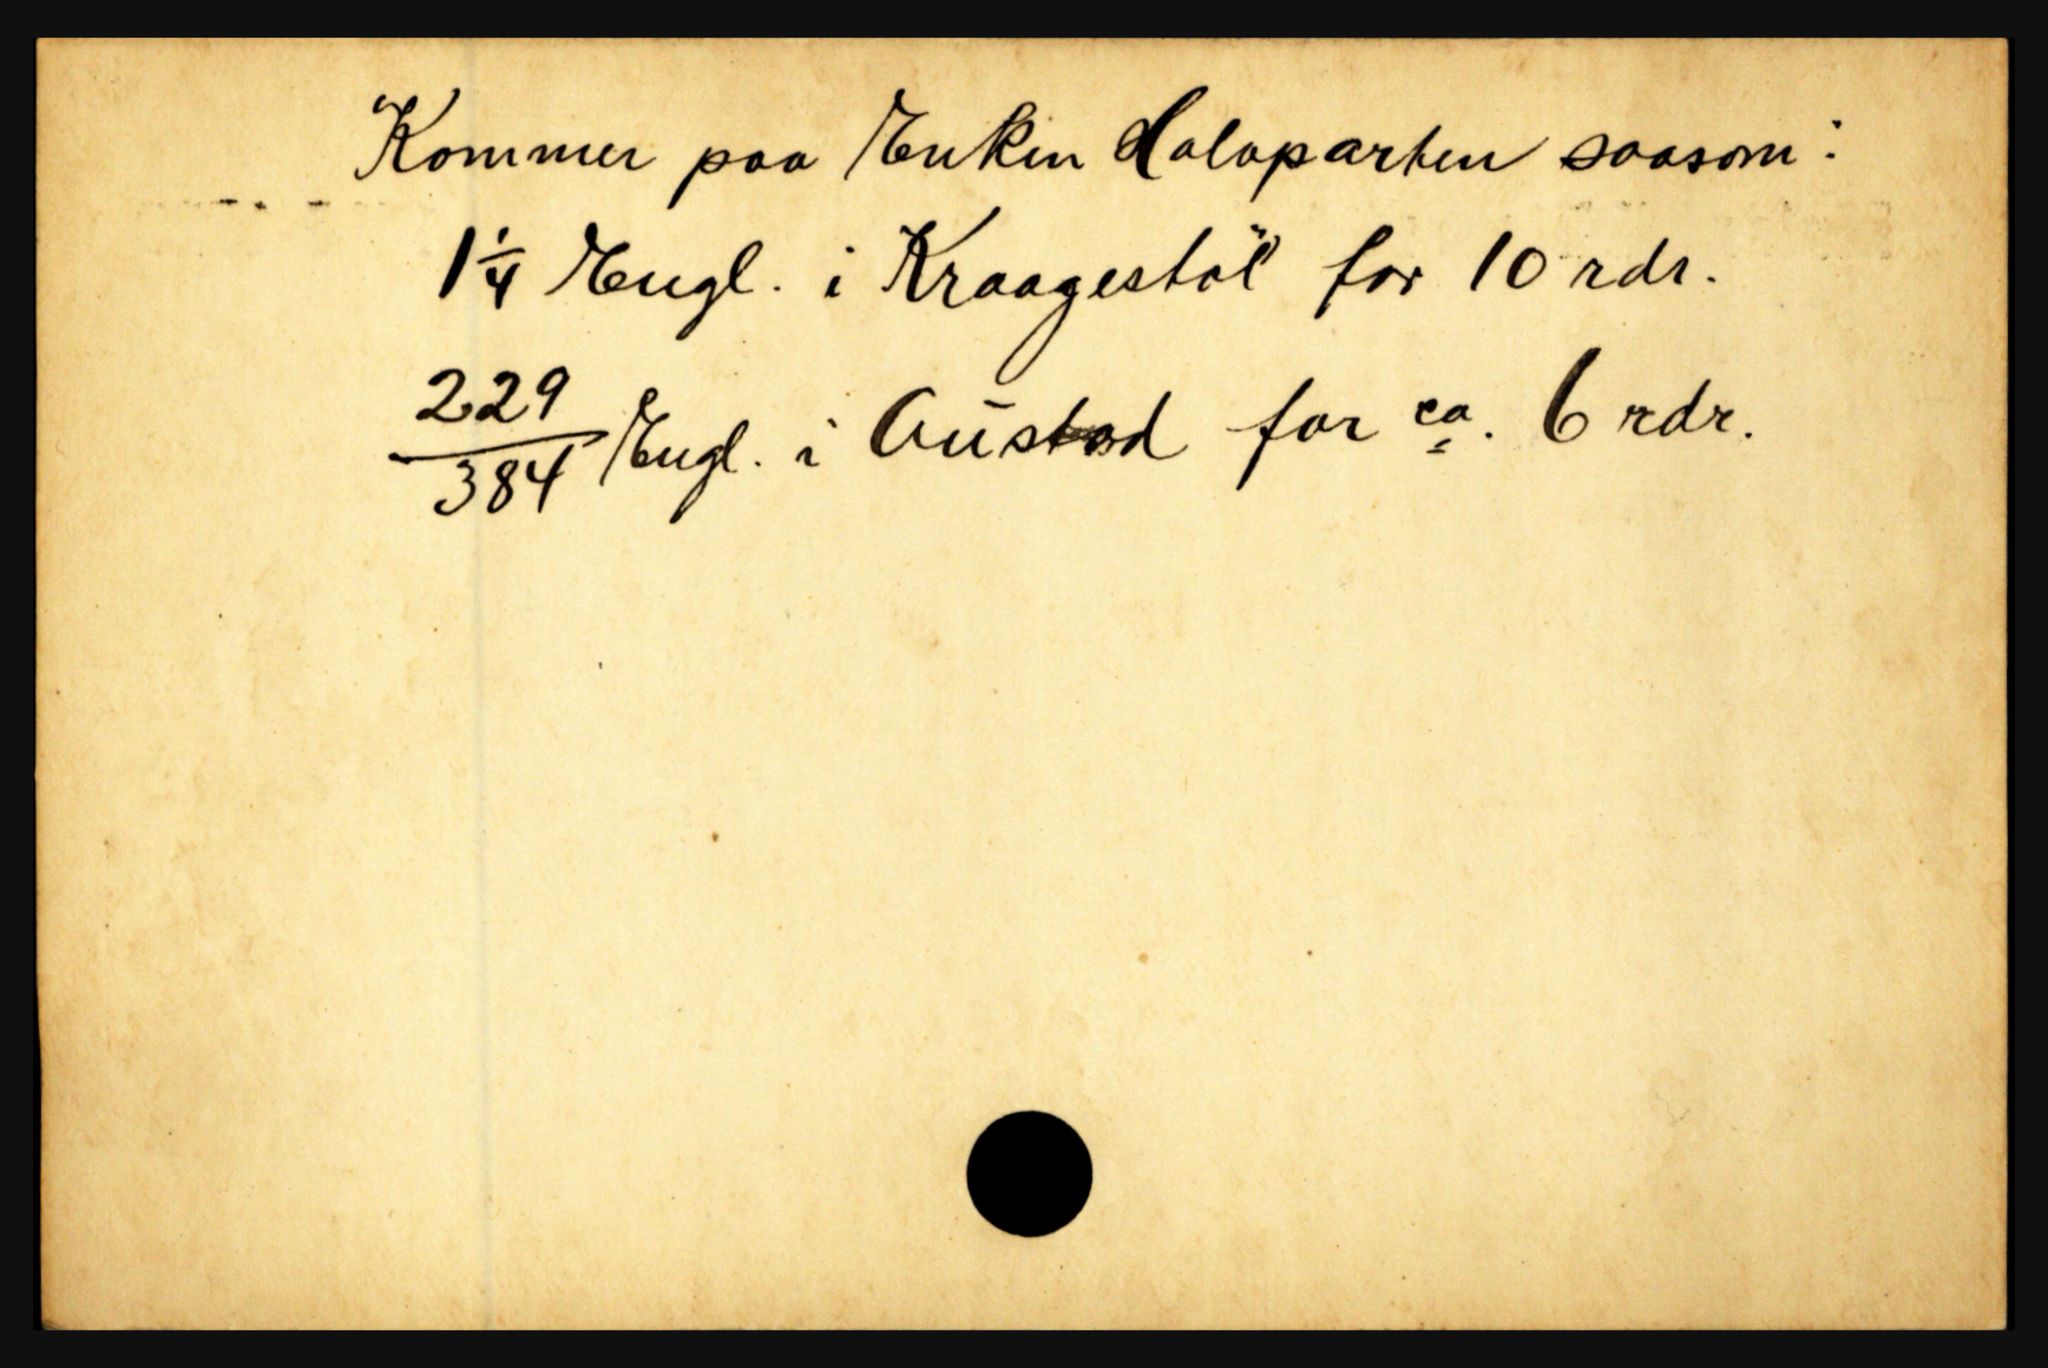 Kommer paa Enken Halvparten saasom:
1 1/4 Engl. i Kraagestöl for 10 rdr.
229/384 Engl. i Austad for ca. 6 rdr.